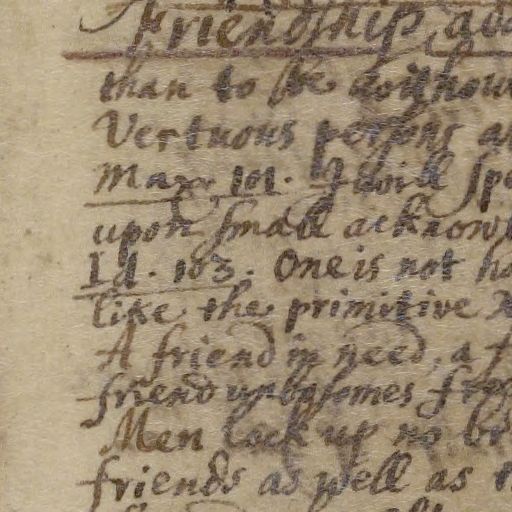 Friendship, ado
than to be without
Vertuous persons a
Max. 101. I will spe
upon small acknowl
Id. 103. One is not ha
like the primitive X
A friend in need, a f
friend unbosomes free
Men lock up no br
friends as well as t